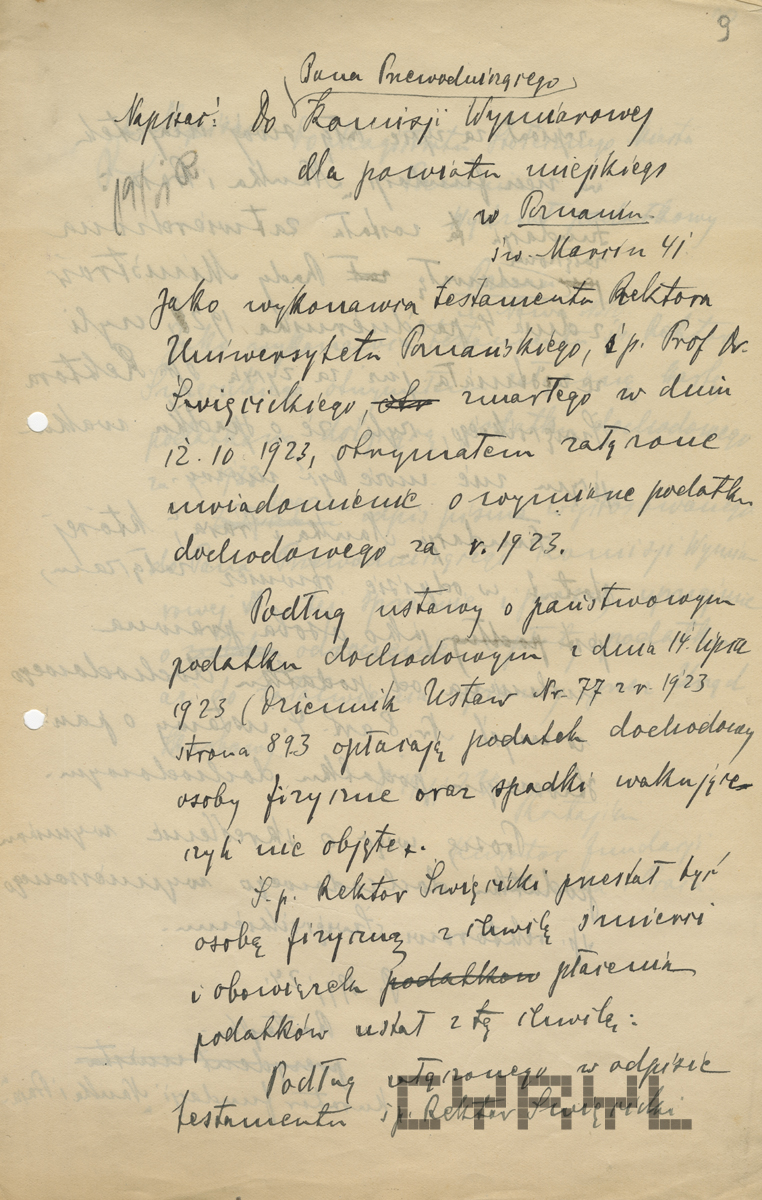 9
Pana Przewodniczącego
Napisać: Do Komisji Wymiarowej
dla powiatu miejskiego
w Poznaniu.
św. Marcin 41
Jako wykonawca testamentu Rektora
Uniwersytetu Poznańskiego, śp. Prof Dr.
Święcickiego, zmarłego w dniu
12.10 1923, otrzymałem załączone
uwiadomienie o wymiarze podatku
dochodowego za r. 1923.
Podług ustawy o państwowym
podatku dochodowym z dnia 14. lipca
1923 (Dziennik Ustaw Nr. 77 z r. 1923
strona 893 opłacają podatek dochodowy
osoby fizyczne oraz spadki wakujące
czyli nie objęte.
Ś.p. Rektor Święcicki przestał być
osobą fizyczną z chwilą śmierci
i obowiązek podatkow płacenia
podatków ustał z tą chwilą:
Podług załączonego w odpisie
testamentu śp. Rektor Święcicki
CYRYL